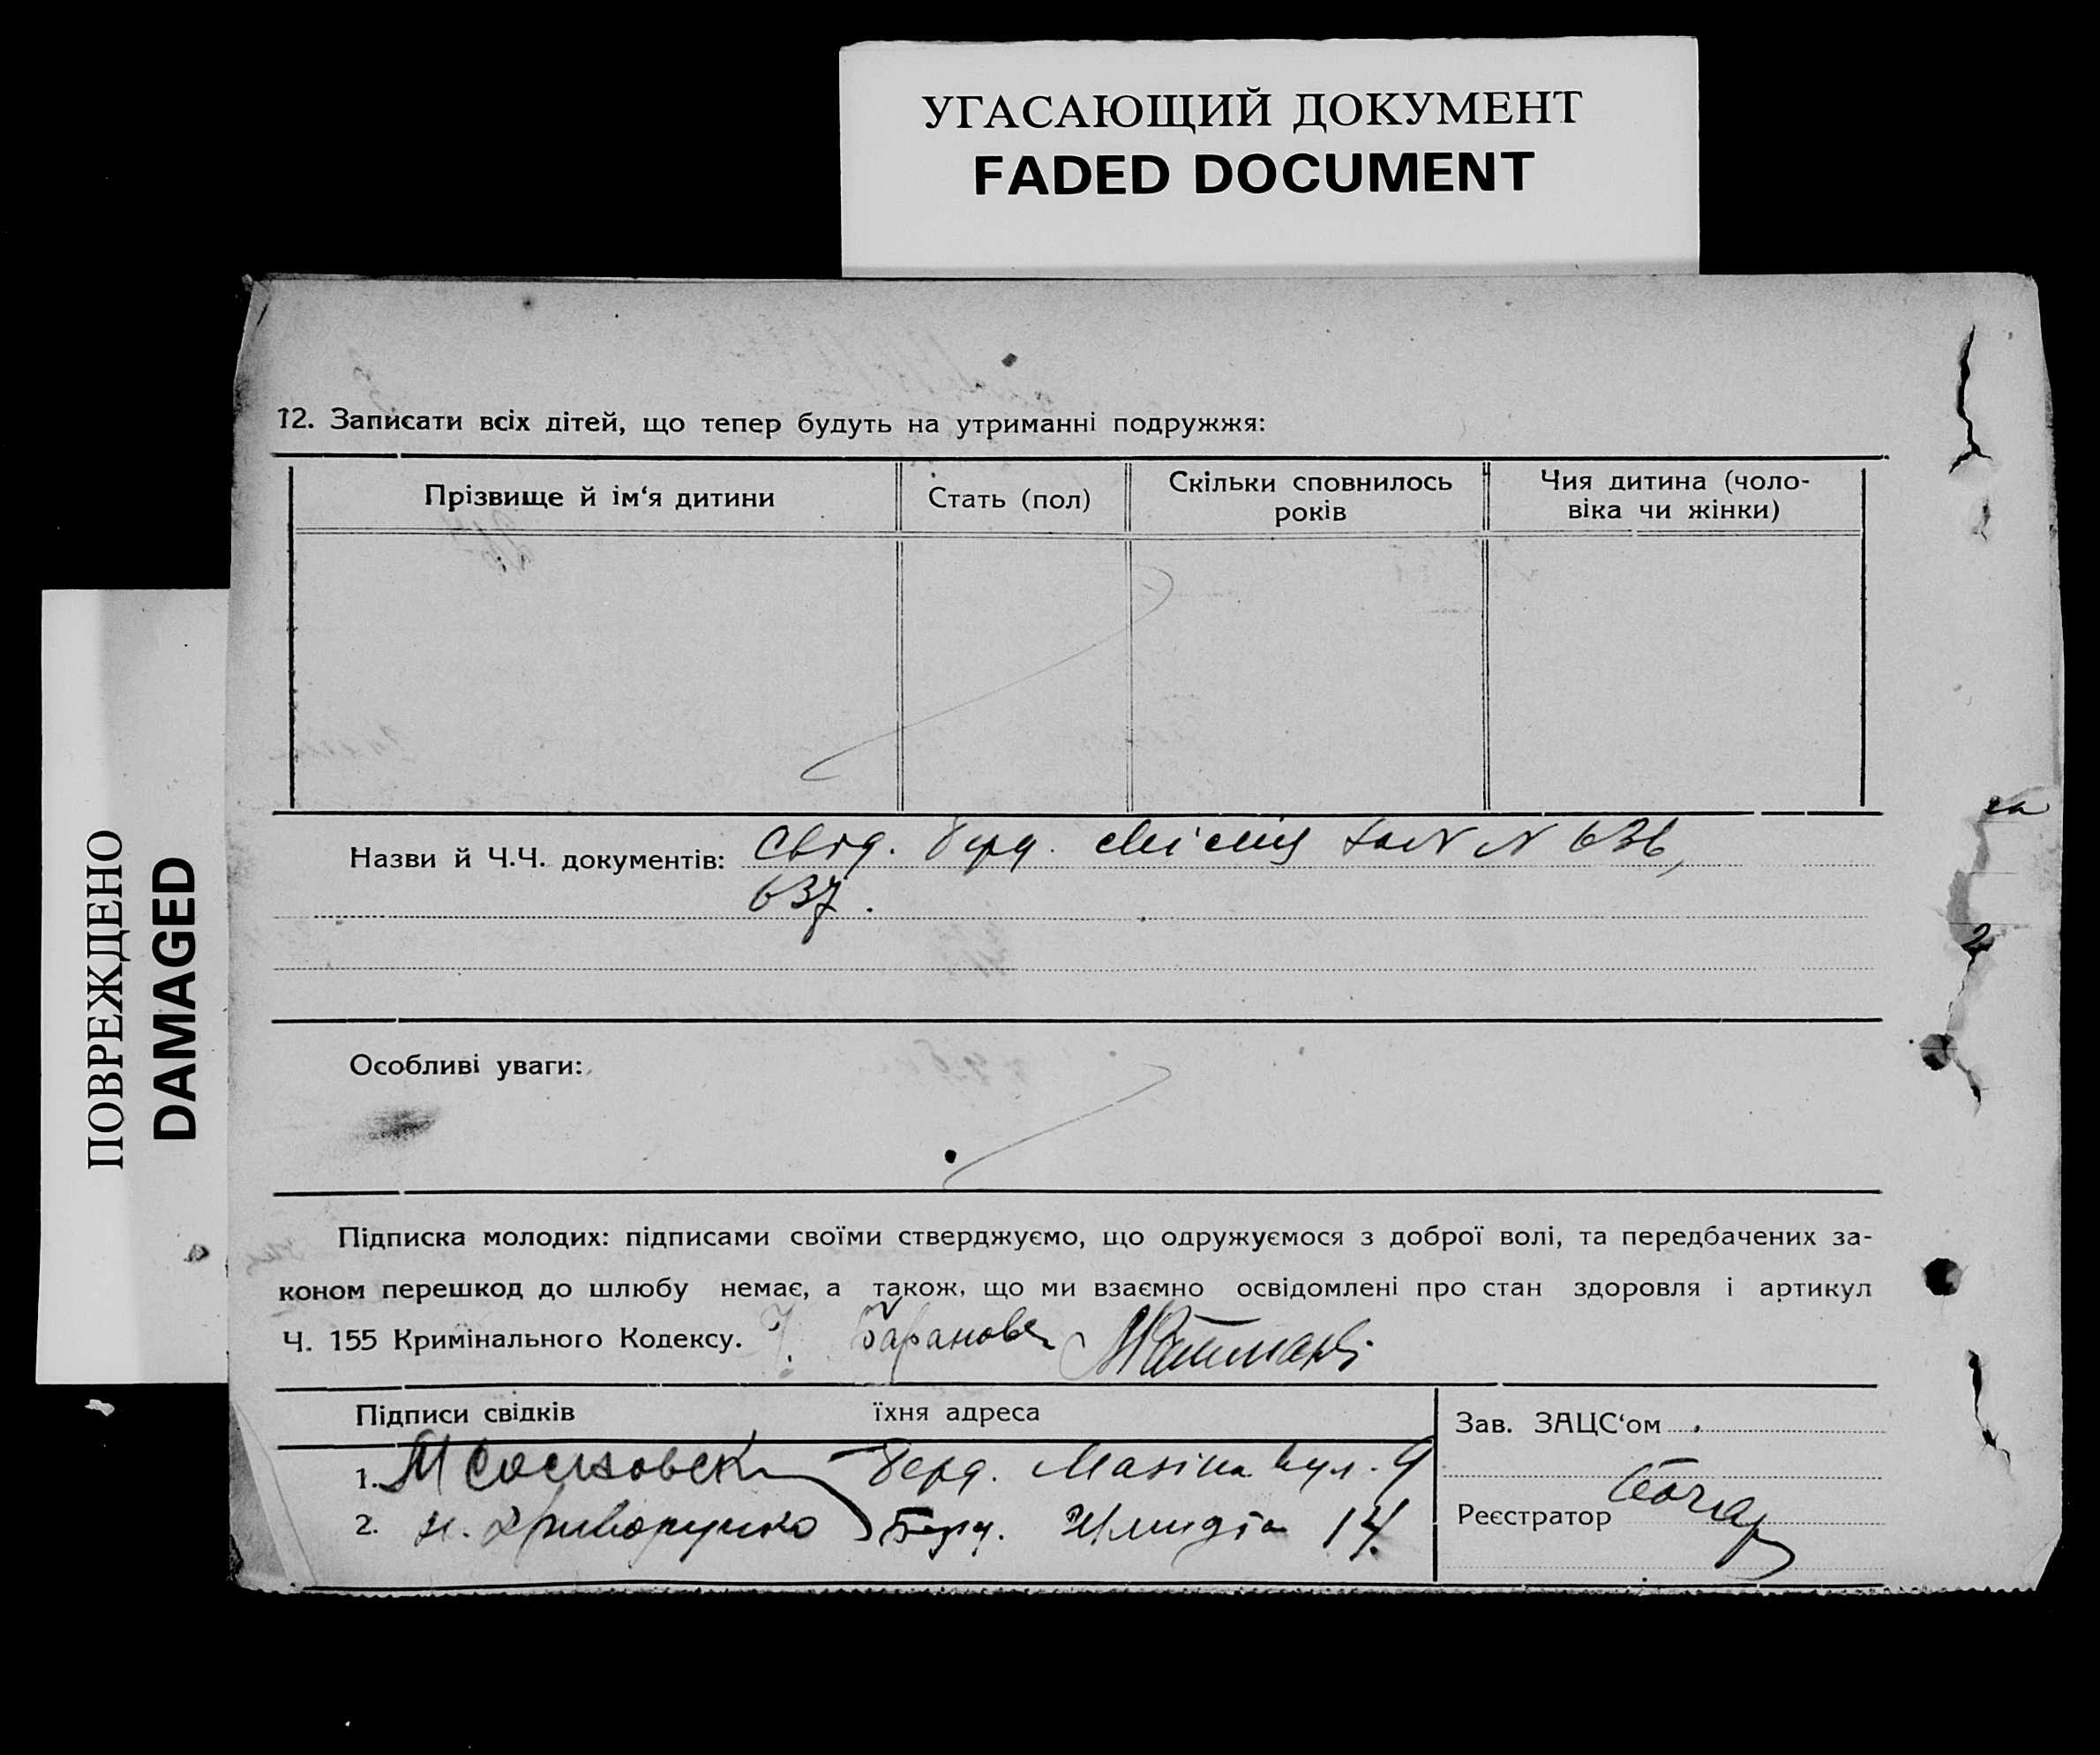 УГАСАЮЩИЙ ДОКУМЕНТ
FADED DOCUMENT
ПОВРЕЖДЕНО
DAMAGED
12. Записати всіх дітей, що тепер будуть на утриманні подружжя:
Прізвище й ім‘я дитини
Стать (пол)
Скільки сповнилось
років
Чия дитина (чоло-
віка чи жінки)
Назви й Ч.Ч. документів: Свід. Берд. N 636,
637.
Особливі уваги:
Підписка молодих: підписами своїми стверджуємо, що одружуємося з доброї волі, та передбачених за-
коном перешкод до шлюбу немає, а також, що ми взаємно освідомлені про стан здоровля і артикул
Ч. 155 Кримінального Кодексу. Баранова
Підписи свідків їхня адреса
1. Берд. вул. 9
2. Н. Криворучко Берд. 14
Зав. ЗАЦС‘ом
Реєстратор